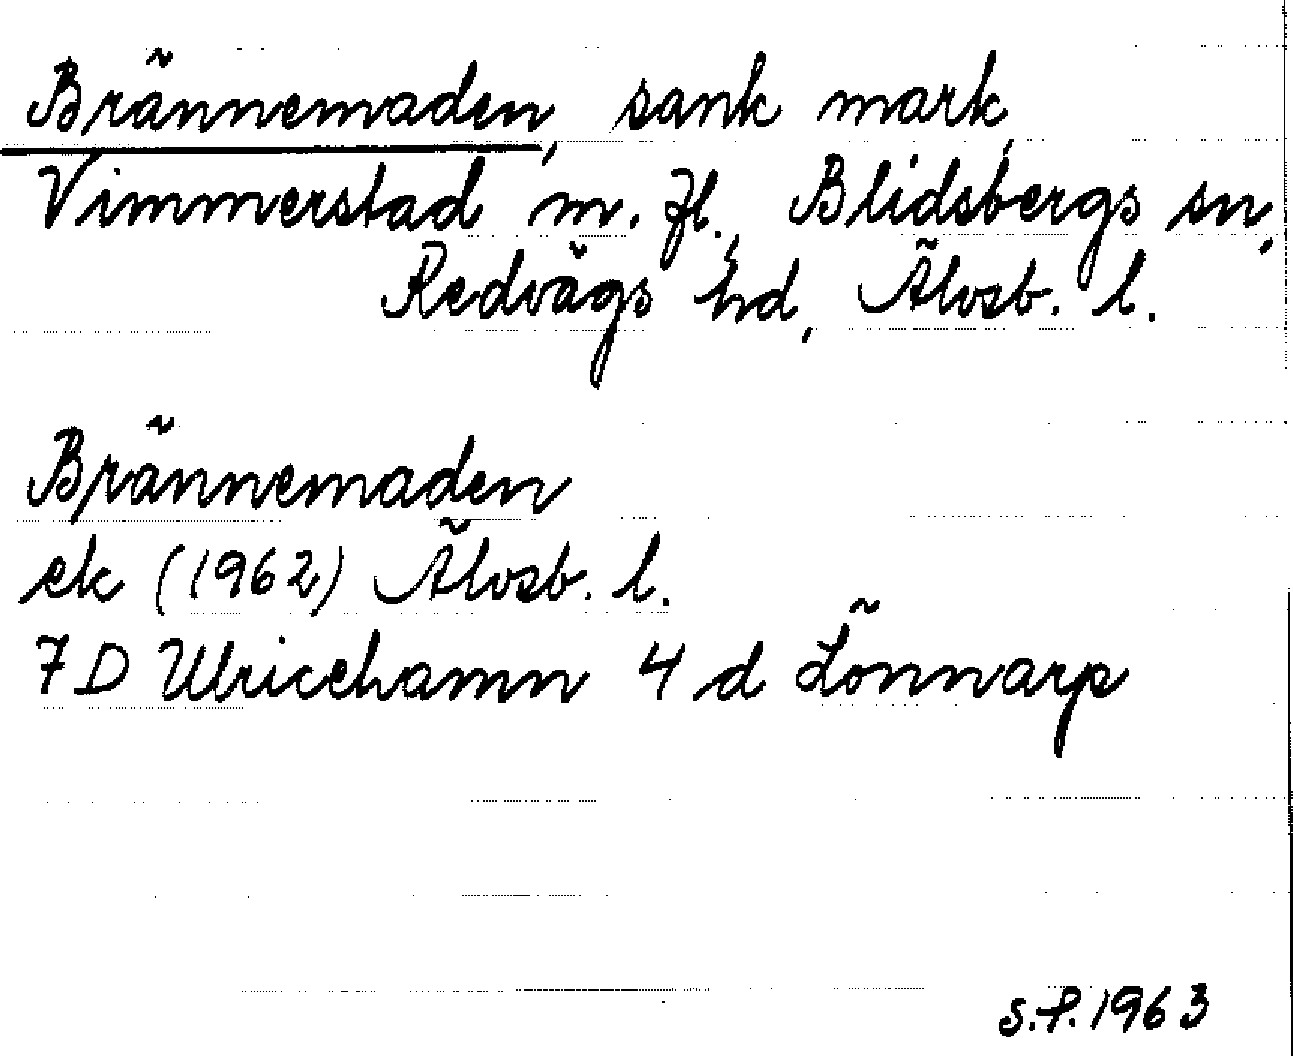 Brännemaden, sank mark,
Vimmerstad m. fl., Blidsbergs sn,
Redvägs hd, Älvsb. l.
Brännemaden
ek (1962) Älvsb. l.
7 D Ulricehamn 4 d Lönnarp
S.P. 1963